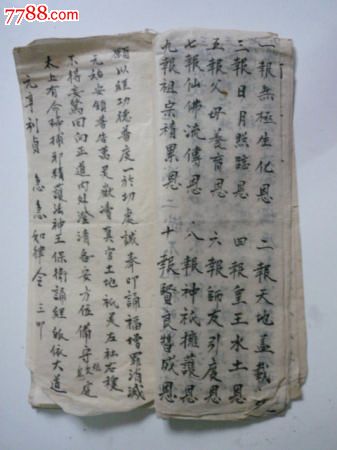 7788.com
一報無極生化恩 二報天地蓋載恩
三報日月照臨恩 四報皇王水土恩
五報父母養育恩 六報師友引度恩
七報仙佛流傳恩 八報神祇擁護恩
九報祖宗積累恩 十報賢良贊成恩
願以經功德普度一於功處誠奔叩誦福增罪消滅
元始安鎮普告萬灵嶽瀆真官土地祇灵左社右稷
不得妄驚回向正道內外澄清各安方位備守坛庭
太上有命搜捕邪精護法神王保衛誦經皈依大道
元亨利貞 急急如律令 三叩